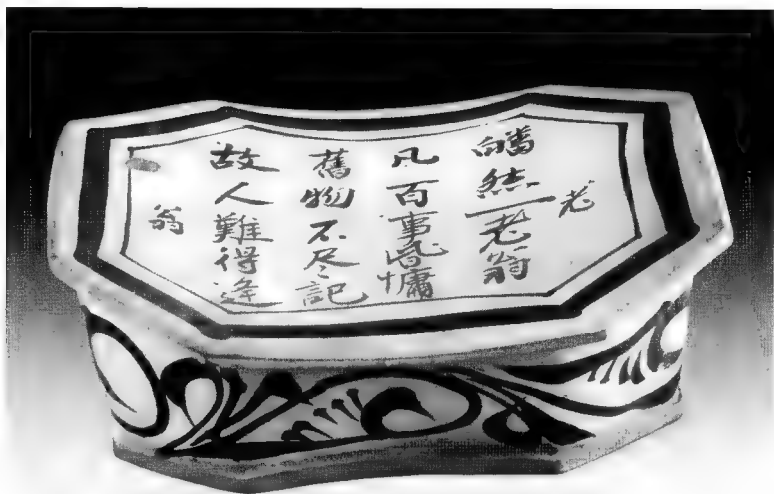 老
皤然一老翁
凡百事昏慵
舊物不尽記
故人難得逢
翁